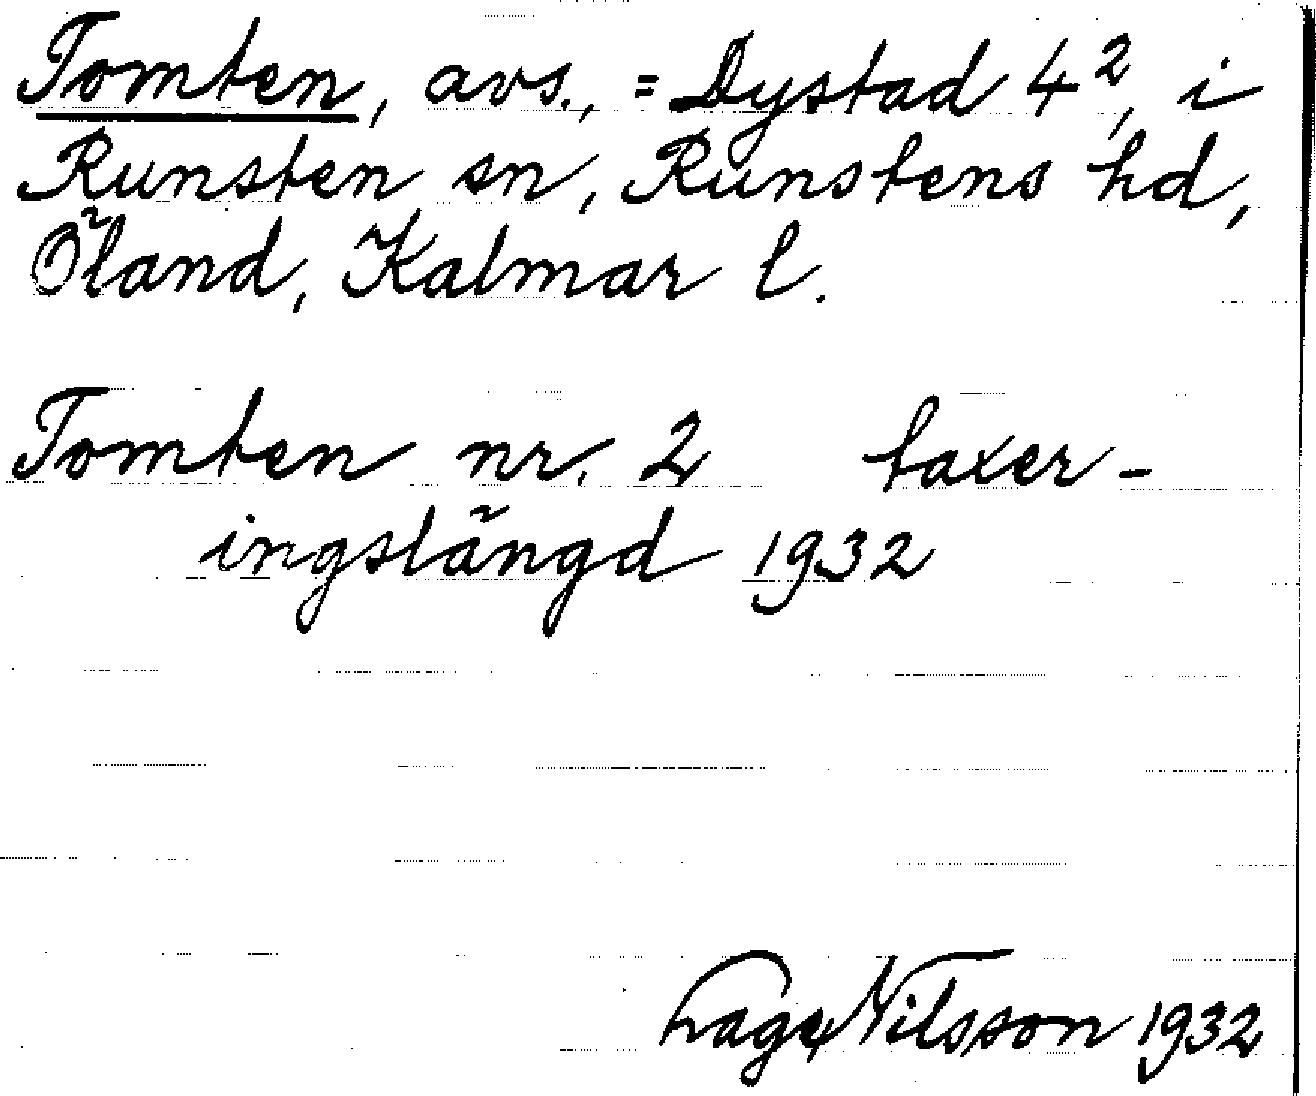 Tomten, avs., = Dystad 4², i
Runsten sn, Runstens hd,
Öland, Kalmar l.
Tomten nr. 2 taxer-
ingslängd 1932
Lage Nilsson 1932